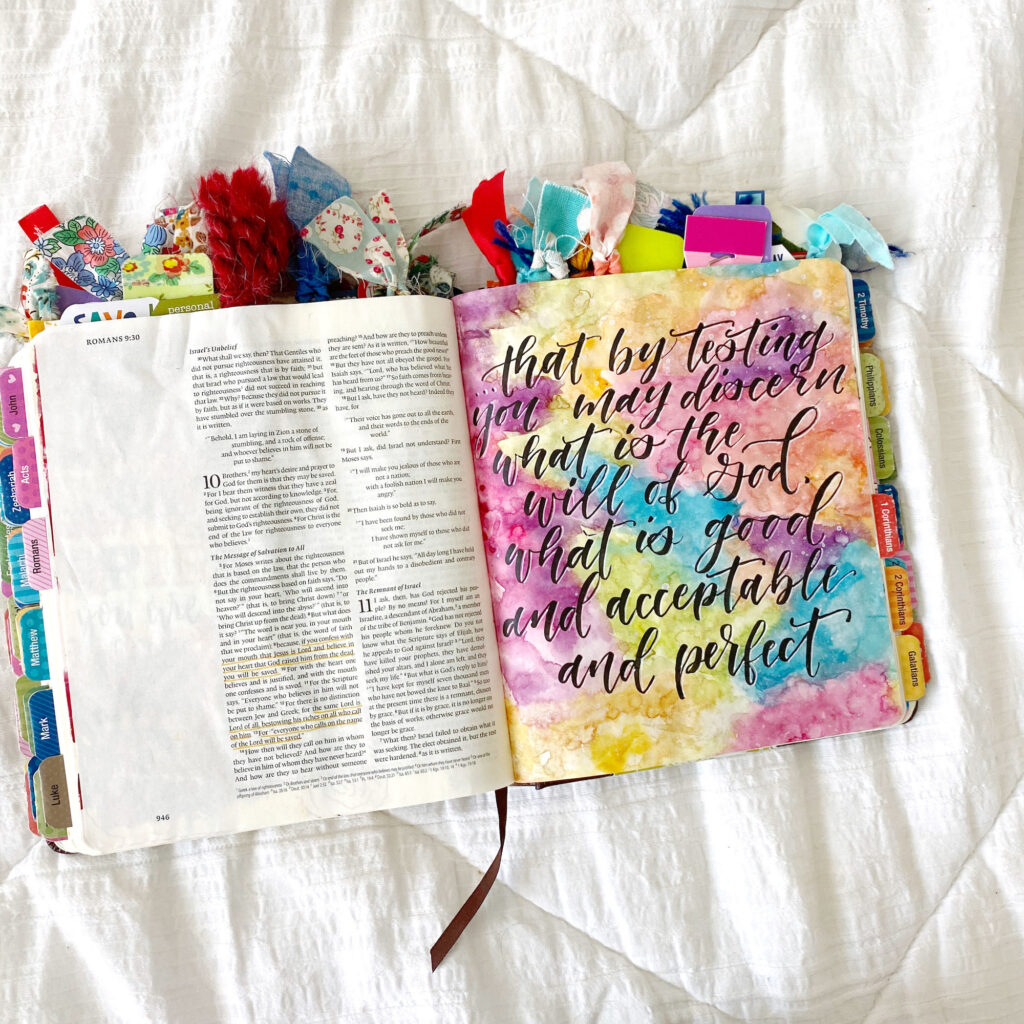 SAVE
personal
ROMANS 9:30
Israel's Unbelief
³⁰What shall we say, then? That Gentiles who
did not pursue righteousness have attained it,
that is, a righteousness that is by faith; ³¹but
that Israel who pursued a law that would lead
to righteousness did not succeed in reaching
that law. ³²Why? Because they did not pursue it
by faith, but as if it were based on works. They
have stumbled over the stumbling stone, ³³as
it is written,
"Behold, I am laying in Zion a stone of
stumbling, and a rock of offense;
and whoever believes in him will not be
put to shame."
10 Brothers, my heart's desire and prayer to
God for them is that they may be saved.
²For I bear them witness that they have a zeal
for God, but not according to knowledge. ³For,
being ignorant of the righteousness of God,
and seeking to establish their own, they did not
submit to God's righteousness. ⁴For Christ is the
end of the law for righteousness to everyone
who believes.
The Message of Salvation to All
⁵For Moses writes about the righteousness
that is based on the law, that the person who
does the commandments shall live by them.
⁶But the righteousness based on faith says, "Do
not say in your heart, 'Who will ascend into
heaven?'" (that is, to bring Christ down) ⁷"or
'Who will descend into the abyss?'" (that is, to
bring Christ up from the dead). ⁸But what does
it say? "The word is near you, in your mouth
and in your heart" (that is, the word of faith
that we proclaim); ⁹because, if you confess with
your mouth that Jesus is Lord and believe in
your heart that God raised him from the dead,
you will be saved. ¹⁰For with the heart one
believes and is justified, and with the mouth
one confesses and is saved. ¹¹For the Scripture
says, "Everyone who believes in him will not
be put to shame." ¹²For there is no distinction
between Jew and Greek; for the same Lord is
Lord of all, bestowing his riches on all who call
on him. ¹³For "everyone who calls on the name
of the Lord will be saved."
¹⁴How then will they call on him in whom
they have not believed? And how are they to
believe in him of whom they have never heard?
And how are they to hear without someone
preaching? ¹⁵And how are they to preach unless
they are sent? As it is written, "How beautiful
are the feet of those who preach the good news!"
¹⁶But they have not all obeyed the gospel. For
Isaiah says, "Lord, who has believed what he
has heard from us?" ¹⁷So faith comes from hear-
ing, and hearing through the word of Christ.
¹⁸But I ask, have they not heard? Indeed they
have, for
"Their voice has gone out to all the earth,
and their words to the ends of the
world."
¹⁹But I ask, did Israel not understand? First
Moses says,
"I will make you jealous of those who are
not a nation;
with a foolish nation I will make you
angry."
²⁰Then Isaiah is so bold as to say,
"I have been found by those who did not
seek me;
I have shown myself to those who did
not ask for me."
²¹But of Israel he says, "All day long I have held
out my hands to a disobedient and contrary
people."
The Remnant of Israel
11 I ask, then, has God rejected his peo-
ple? By no means! For I myself am an
Israelite, a descendant of Abraham, a member
of the tribe of Benjamin. ²God has not rejected
his people whom he foreknew. Do you not
know what the Scripture says of Elijah, how
he appeals to God against Israel? ³"Lord, they
have killed your prophets, they have demol-
ished your altars, and I alone am left, and they
seek my life." ⁴But what is God's reply to him?
"I have kept for myself seven thousand men
who have not bowed the knee to Baal." ⁵So too
at the present time there is a remnant, chosen
by grace. ⁶But if it is by grace, it is no longer on
the basis of works; otherwise grace would no
longer be grace.
⁷What then? Israel failed to obtain what it
was seeking. The elect obtained it, but the rest
were hardened, ⁸as it is written,
946
that by testing
you may discern
what is the
will of God,
what is good
and acceptable
and perfect
John
Acts
Zechariah
Romans
Malachi
Matthew
Mark
Luke
2 Timothy
Philippians
Colossians
1 Corinthians
2 Corinthians
Galatians